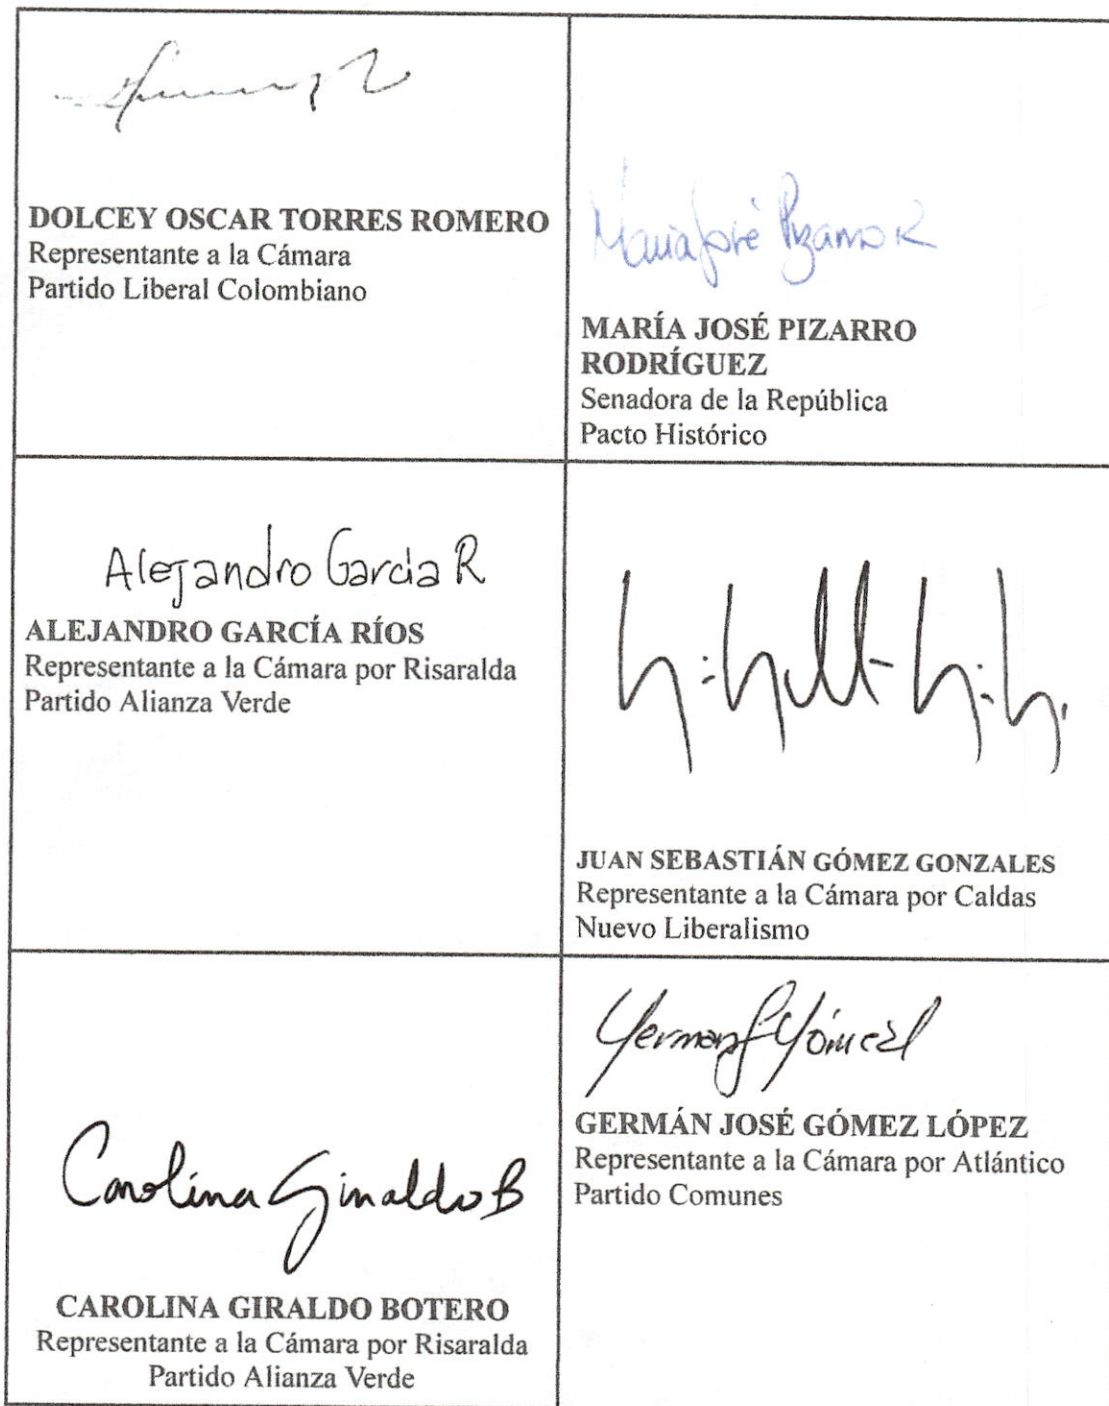 DOLCEY OSCAR TORRES ROMERO
Representante a la Cámara
Partido Liberal Colombiano
María José Pizarro R
MARÍA JOSÉ PIZARRO
RODRÍGUEZ
Senadora de la República
Pacto Histórico
Alejandro Garcia R
ALEJANDRO GARCÍA RÍOS
Representante a la Cámara por Risaralda
Partido Alianza Verde
JUAN SEBASTIÁN GÓMEZ GONZALES
Representante a la Cámara por Caldas
Nuevo Liberalismo
Carolina Giraldo B
CAROLINA GIRALDO BOTERO
Representante a la Cámara por Risaralda
Partido Alianza Verde
GERMÁN JOSÉ GÓMEZ LÓPEZ
Representante a la Cámara por Atlántico
Partido Comunes